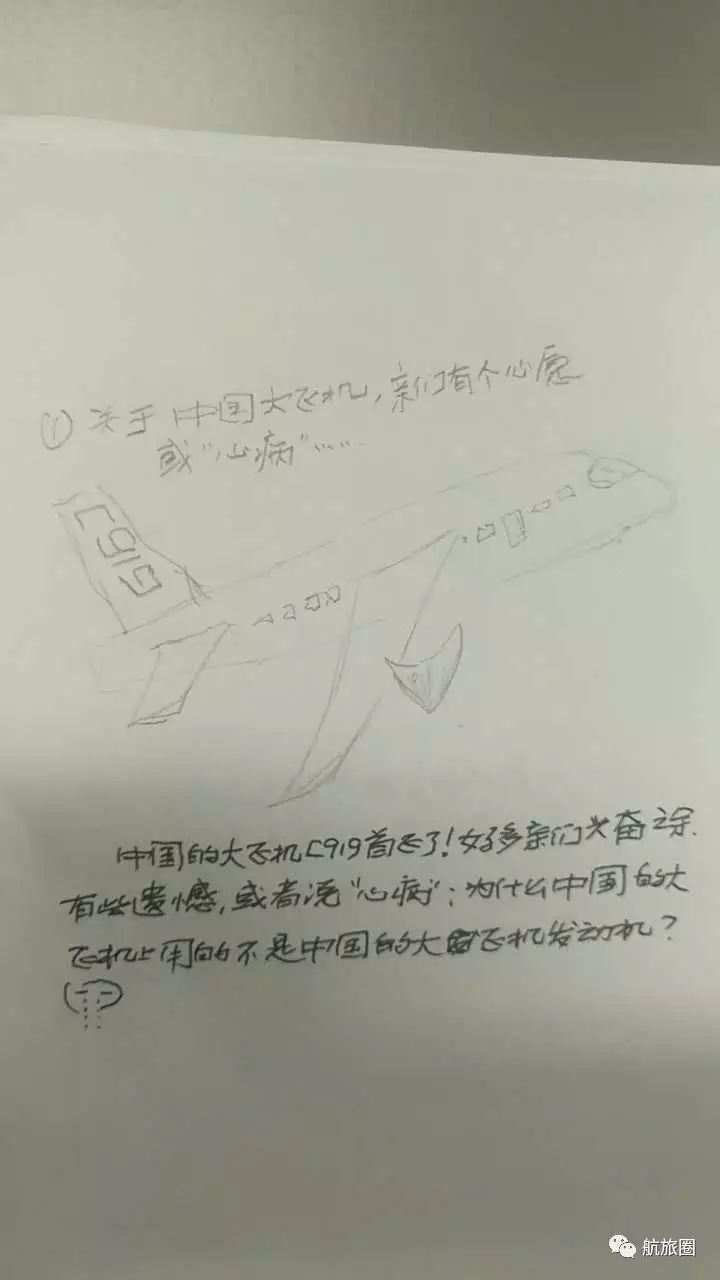 ① 关于中国大飞机,亲们有个心愿
或"心病"……
C919
中国的大飞机C919首飞了!好多亲们兴奋之余
有些遗憾,或者说"心病":为什么中国的大
飞机上用的不是中国的大飞机发动机?
航旅圈